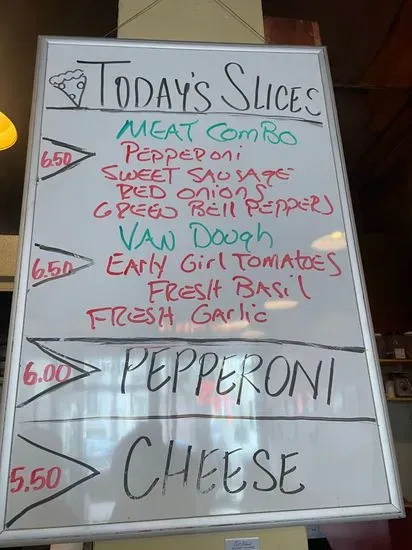 TODAY'S SLICES
MEAT COMBO
6.50 PEPPERONI
SWEET SAUSAGE
RED ONIONS
GREEN BELL PEPPERS
VAN DOUGH
6.50 EARLY GIRL TOMATOES
FRESH BASIL
FRESH GARLIC
6.00 PEPPERONI
5.50 CHEESE